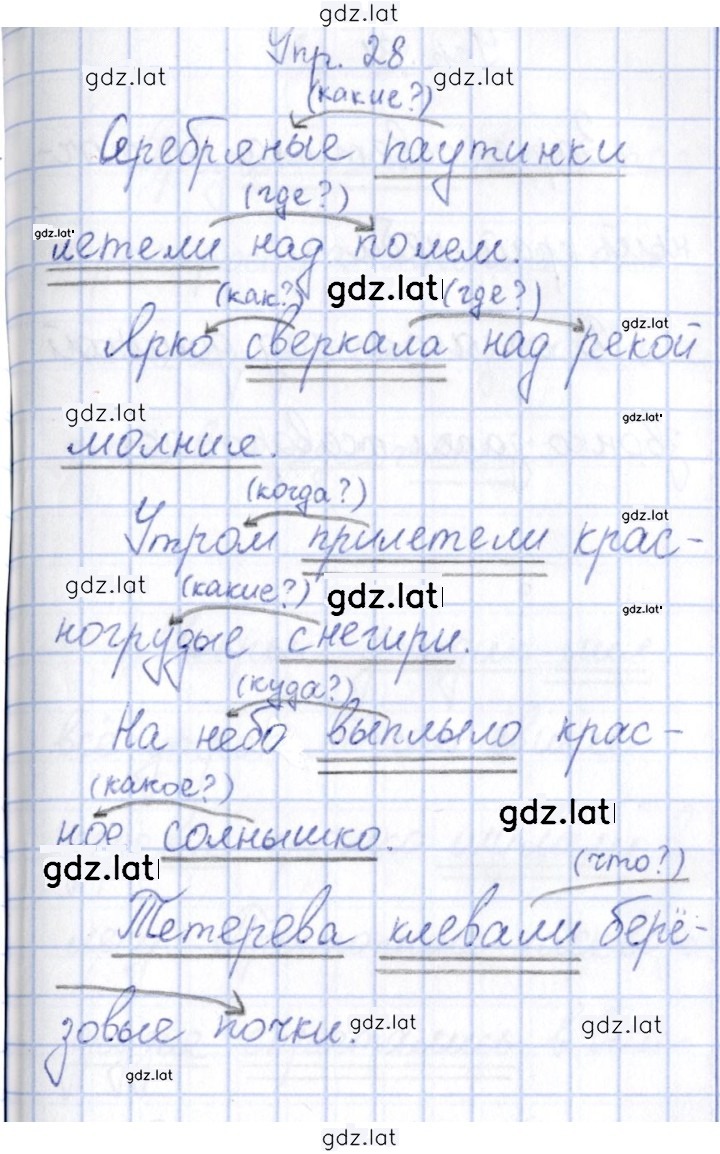 gdz.lat
Упр. 28
gdz.lat gdz.lat
(какие?)
Серебряные паутинки
(где?)
gdz.lat
летели над полем.
(как?) gdz.lat (где?)
gdz.lat
Ярко сверкала над рекой
gdz.lat gdz.lat
молния.
(когда?)
gdz.lat
Утром прилетели крас-
gdz.lat (какие?) gdz.lat gdz.lat
ногрудые снегири.
(куда?)
На небо выплыло крас-
(какое?)
gdz.lat
ное солнышко.
gdz.lat (что?)
Тетерева клевали берё-
зовые почки. gdz.lat gdz.lat
gdz.lat
gdz.lat